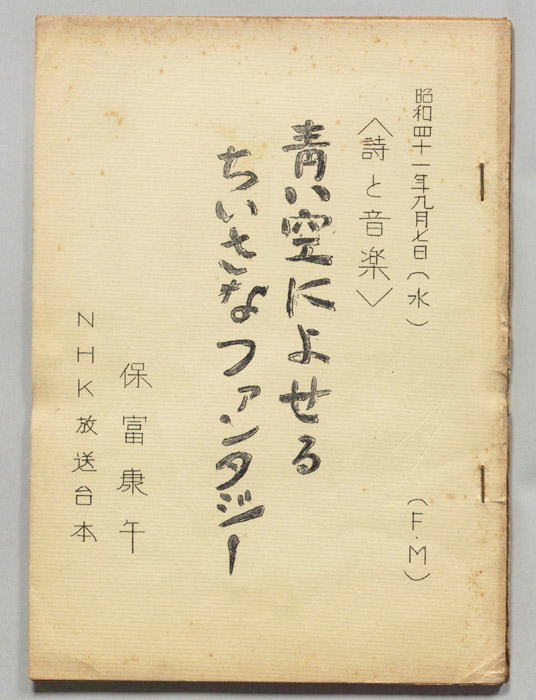 昭和四十一年九月七日(水)
(F.M)
〈詩と音楽〉
青い空によせる
ちいさなファンタジー
保富康午
NHK放送台本